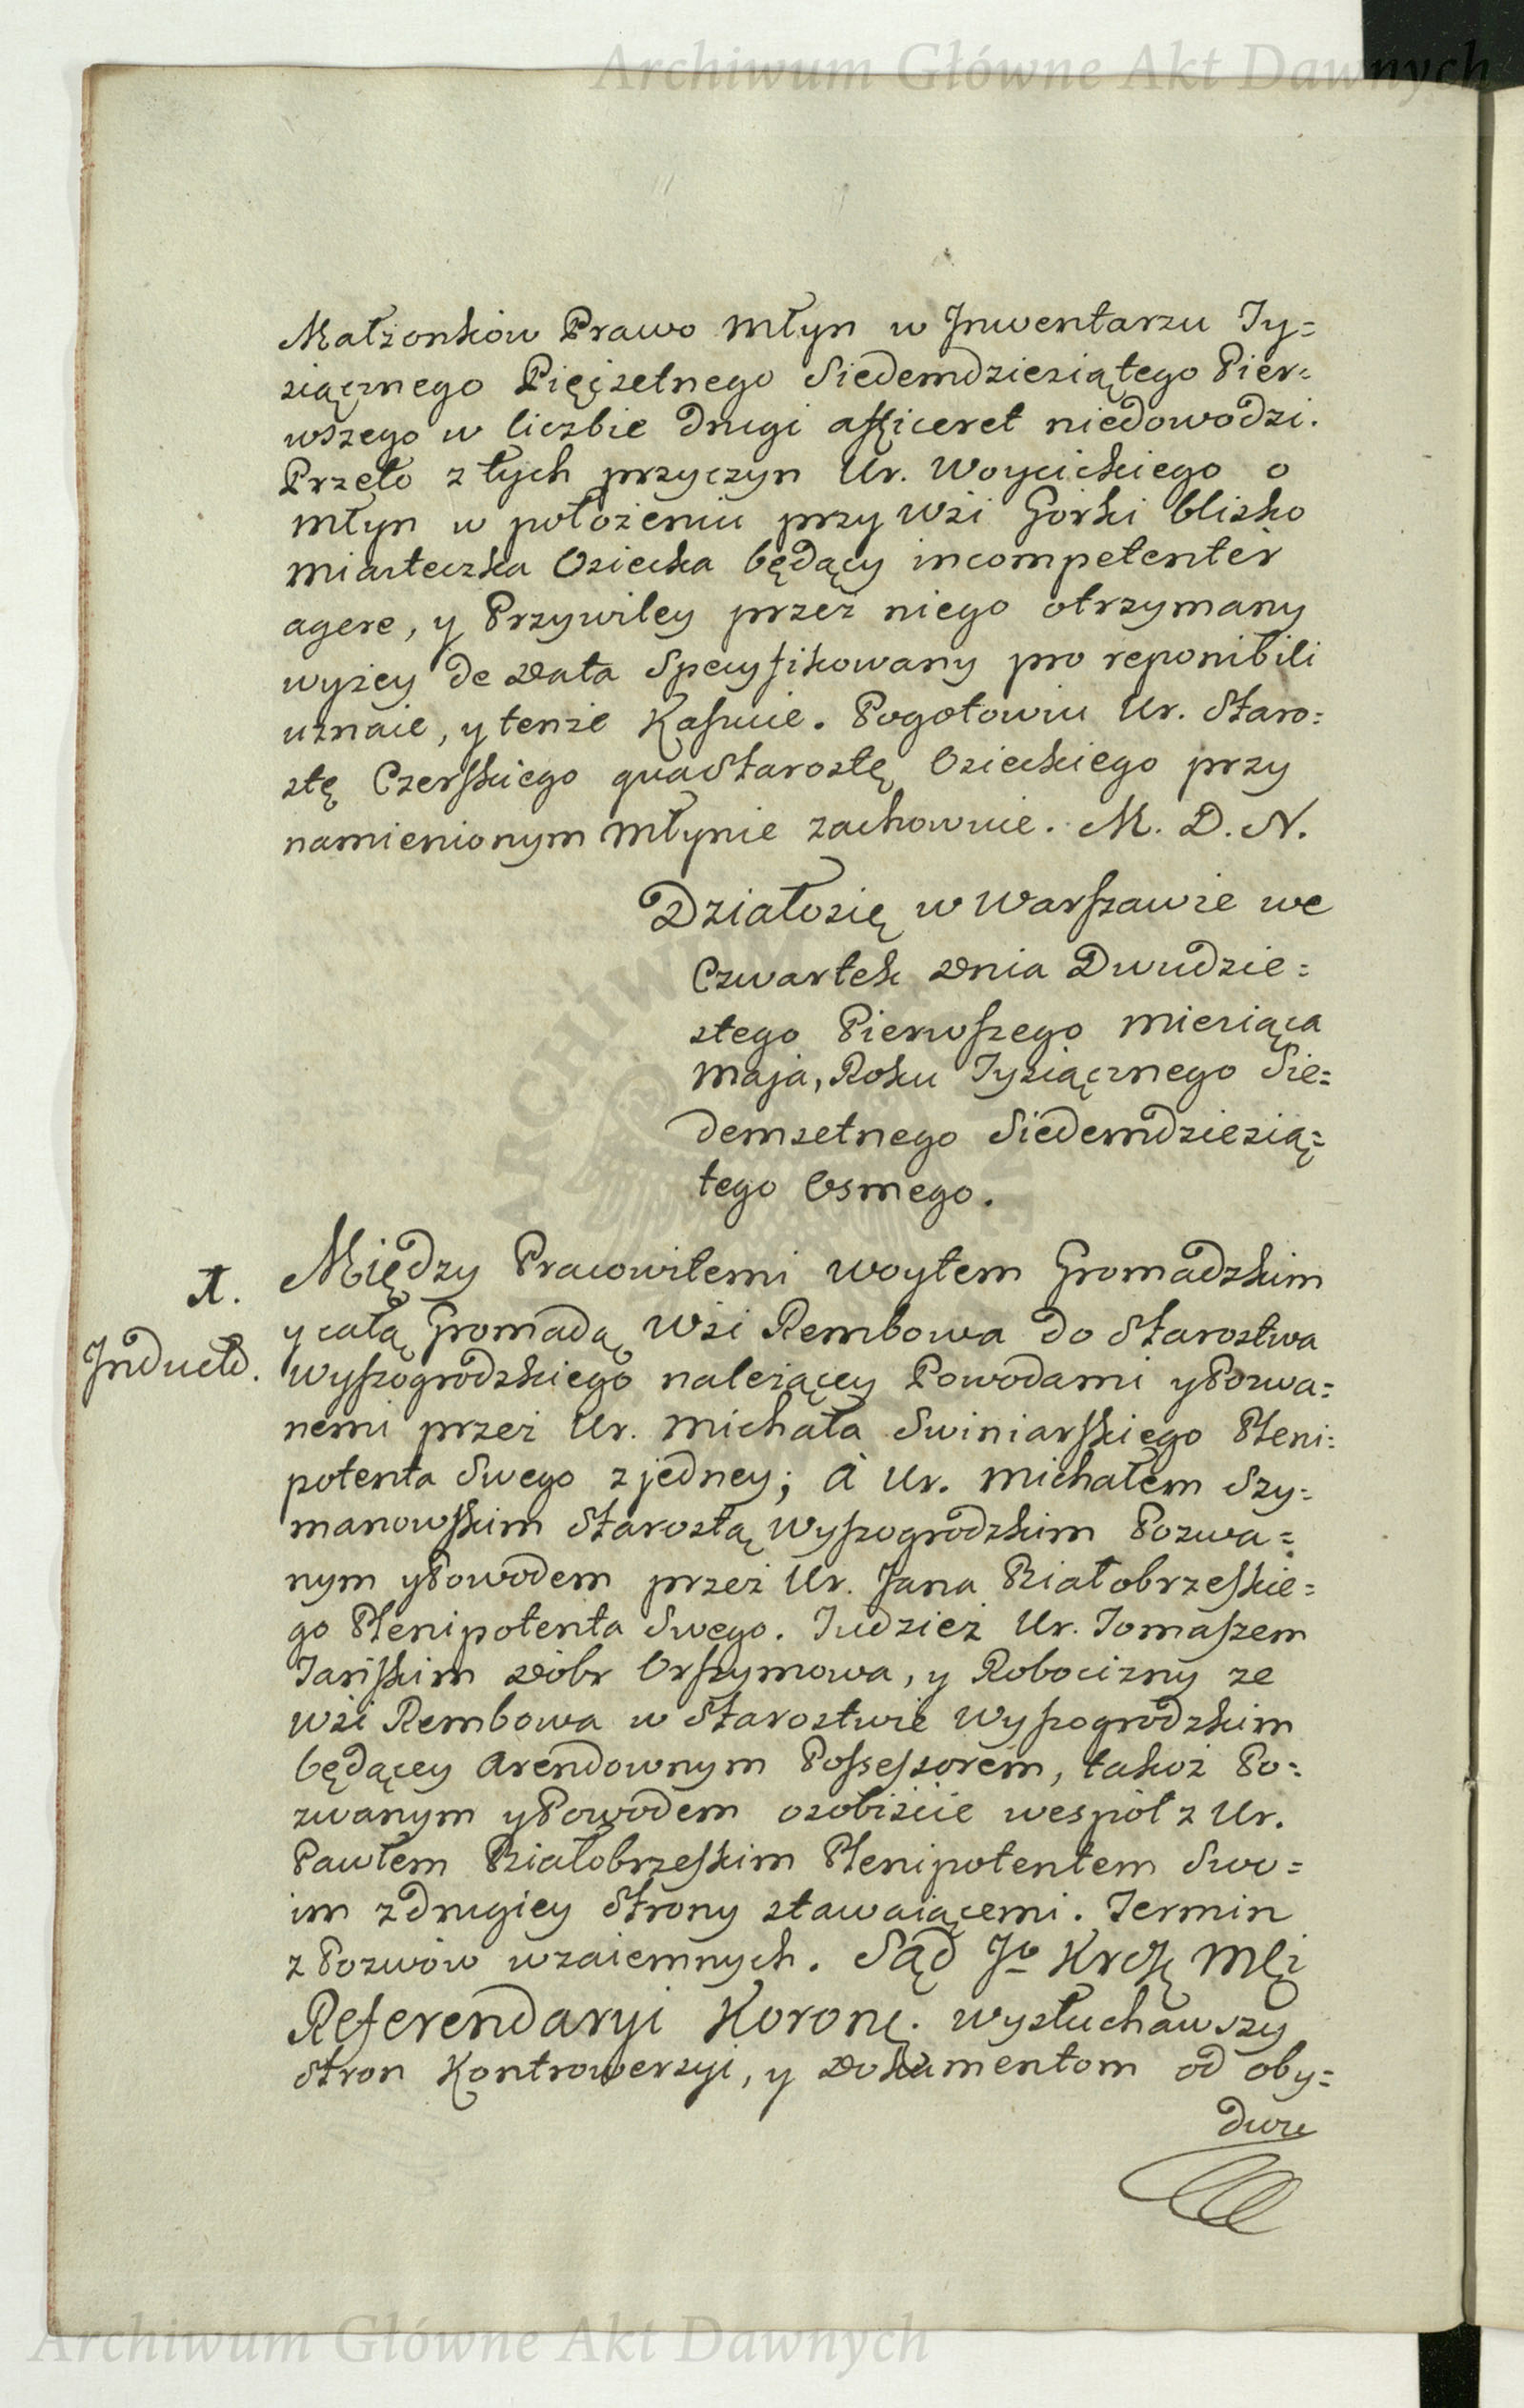 Archiwum Główne Akt Dawnych
Małżonków Prawo Młyn w Jnwentarzu Ty=
siącznego Pięćsetnego Siedemdziesiątego Pier=
wszego w liczbie drugi afficeret niedowodzi.
Przeto z tych przyczyn Ur. Woycickiego o
Młyn w położeniu przy Wsi Gorki blisko
Miasteczka Osiecka będący incompetenter
agere, y Przywiley przez niego otrzymany
wyżey de Data Specyfikowany pro reponibili
uznaie, y tenże Kassuie. Pogotowiu Ur. Staro=
stę Czerskiego qua Starostę Osieckiego przy
namienionym Młynie zachowuie. M. D. N.
Działosię w Warszawie we
Czwartek Dnia Dwudzie=
stego Pierwszego Miesiąca
Maja, Roku Tysiącznego Sie=
demsetnego Siedemdziesią=
tego Osmego.
Między Pracowitemi Woytem Gromadzkim
y całą Gromadą Wsi Rembowa do Starostwa
Jnduct.
Wyszogrodzkiego należącey Powodami y Pozwa=
nemi przez Ur. Michała Swiniarskiego Pleni=
potenta Swego z jedney; á Ur. Michałem Szy=
manowskim Starostą Wyszogrodzkim Pozwa=
nym y Powodem przez Ur. Jana Białobrzeskie=
go Plenipotenta Swego. Tudzież Ur. Tomaszem
Jariskim Dobr Orszymowa, y Robocizny ze
Wsi Rembowa w Starostwie Wyszogrodzkim
będącey Arendownym Possessorem, takoż Po=
zwanym y Powodem osobiście wespół z Ur.
Pawłem Białobrzeskim Plenipotentem Swo=
im z drugiey Strony stawaiącemi. Termin
z Pozwów wzaiemnych. Sąd Jo Krcki Mci
Referendaryi Koronę. wysłuchawszy
Stron Kontrowersyi, y Dokumentom od oby=
dwu
Archiwum Główne Akt Dawnych